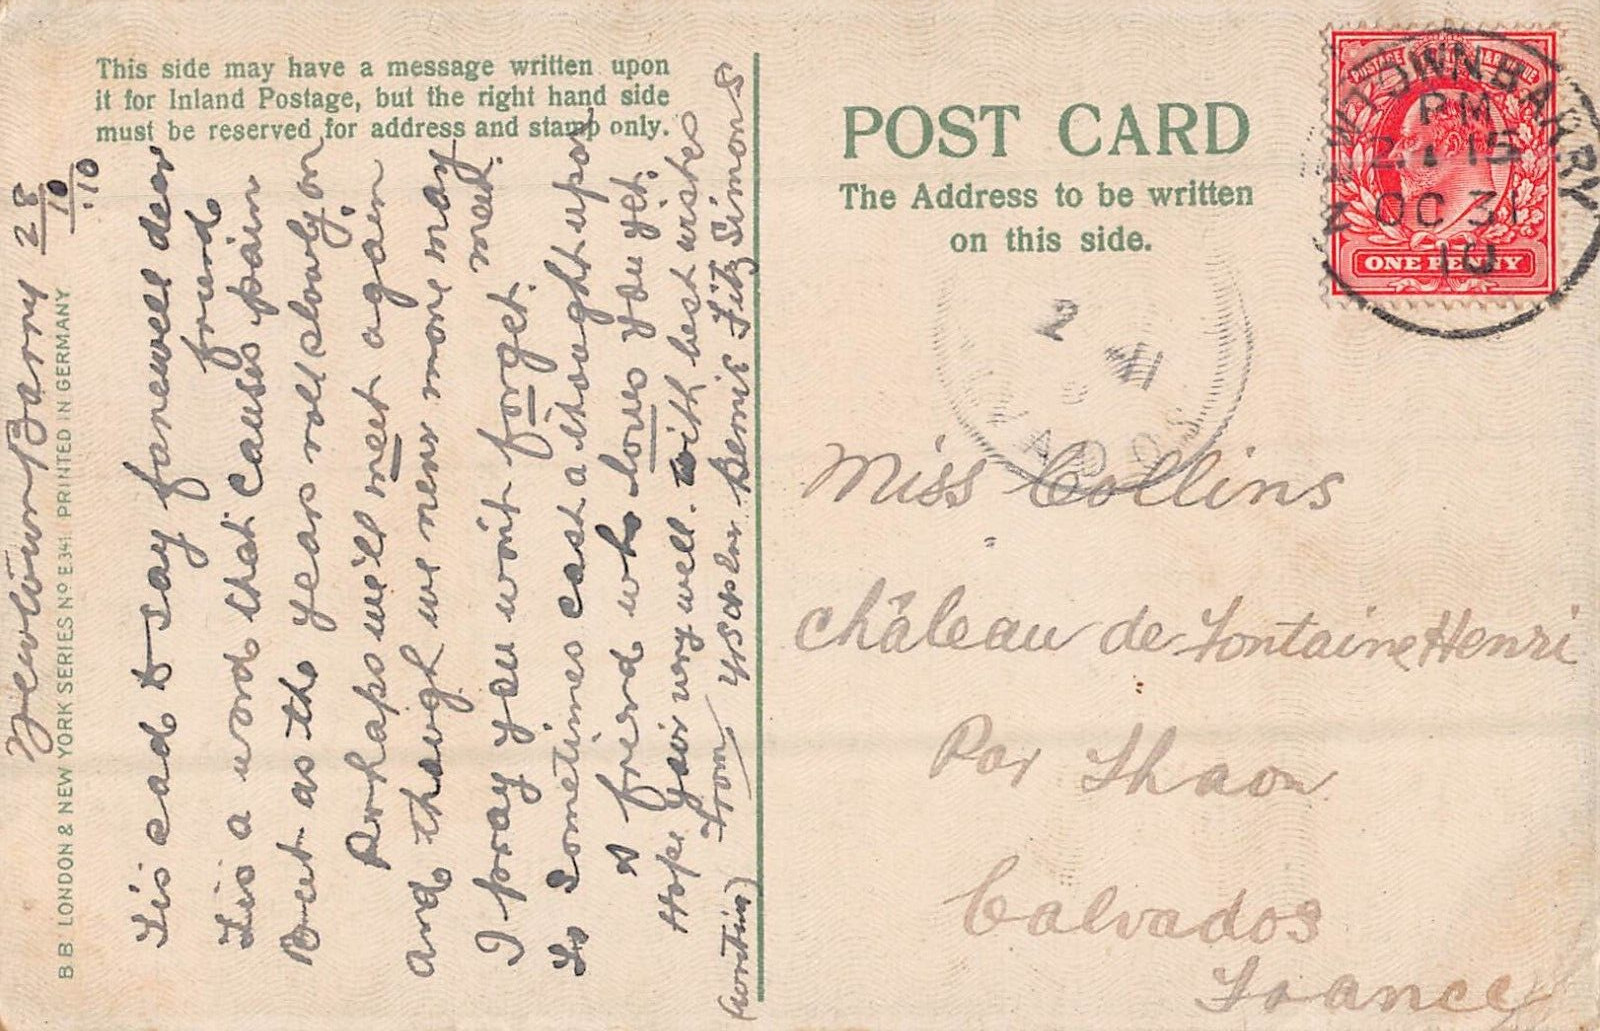 This side may have a message written upon
it for Inland Postage, but the right hand side
must be reserved for address and stamp only.
Newtown Barry 28
10
.10
Tis sad to say farewell dear
friend
Tis a word that causes pain
But as the years roll slowly on
Perhaps we'll meet again
And though we never more may
meet.
I pray you won't forget.
To sometimes cast a thought upon
A friend who loves you yet.
Hope you're very well. with best wishes
From, Dennis Fitz Simons
BB LONDON & NEW YORK SERIES Nº E341. PRINTED IN GERMANY
POST CARD
The Address to be written
on this side.
POSTAGE REVENUE
ONE PENNY
NEWTOWNBARRY
PM
2. 15
OC 31
10
Miss Collins
Château de Fontaine Henri
Par Thaon
Calvados
France